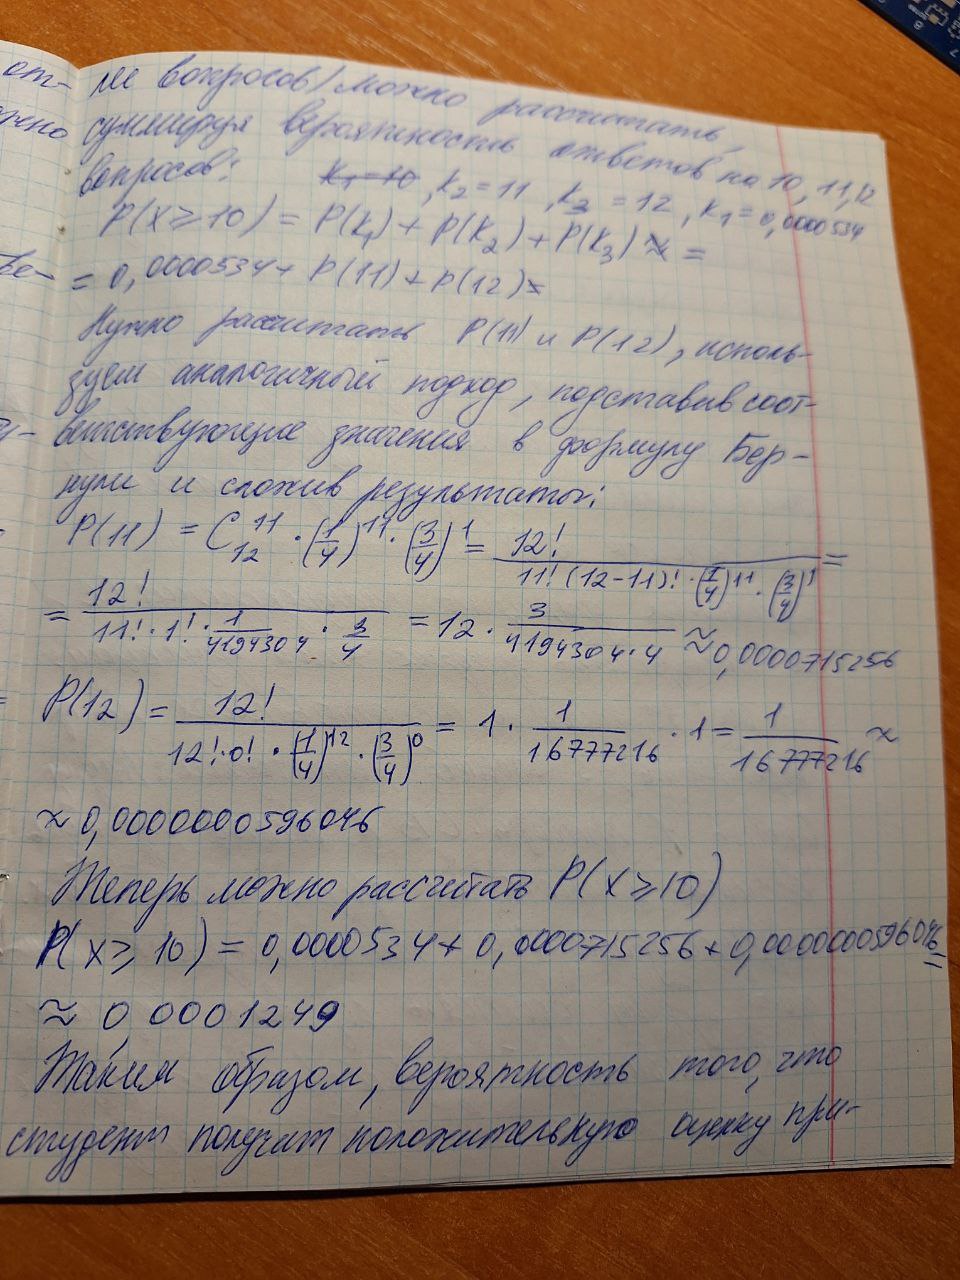 ле вопросов) можно рассчитать,
суммируя вероятность ответов на 10, 11, 12
вопросов: K₁=10, K₂=11, K₃=12, K₁=0,0000534
P(X≥10) = P(K₁) + P(K₂) + P(K₃) ≈ =
= 0,0000534 + P(11) + P(12) =
Нужно рассчитать P(11) и P(12), исполь-
зуем аналогичный подход, подставив соот-
ветствующие значения в формулу Бер-
нули и сложив результаты:
P(11) = C₁₂¹¹ · (1/4)¹¹ · (3/4)¹ = 12! / (11! (12-11)! · (1/4)¹¹ · (3/4)¹) =
= 12! / (11! · 1! · 1/4194304 · 3/4) = 12 · 3/(4194304·4) ≈ 0,0000715256
P(12) = 12! / (12! · 0! · (1/4)¹² · (3/4)⁰) = 1 · 1/16777216 · 1 = 1/16777216 ≈
≈ 0,0000000596046
Теперь можно рассчитать P(X≥10)
P(X≥10) = 0,0000534 + 0,0000715256 + 0,0000000596046 =
≈ 0,0001249
Таким образом, вероятность того, что
студент получит положительную оценку при-